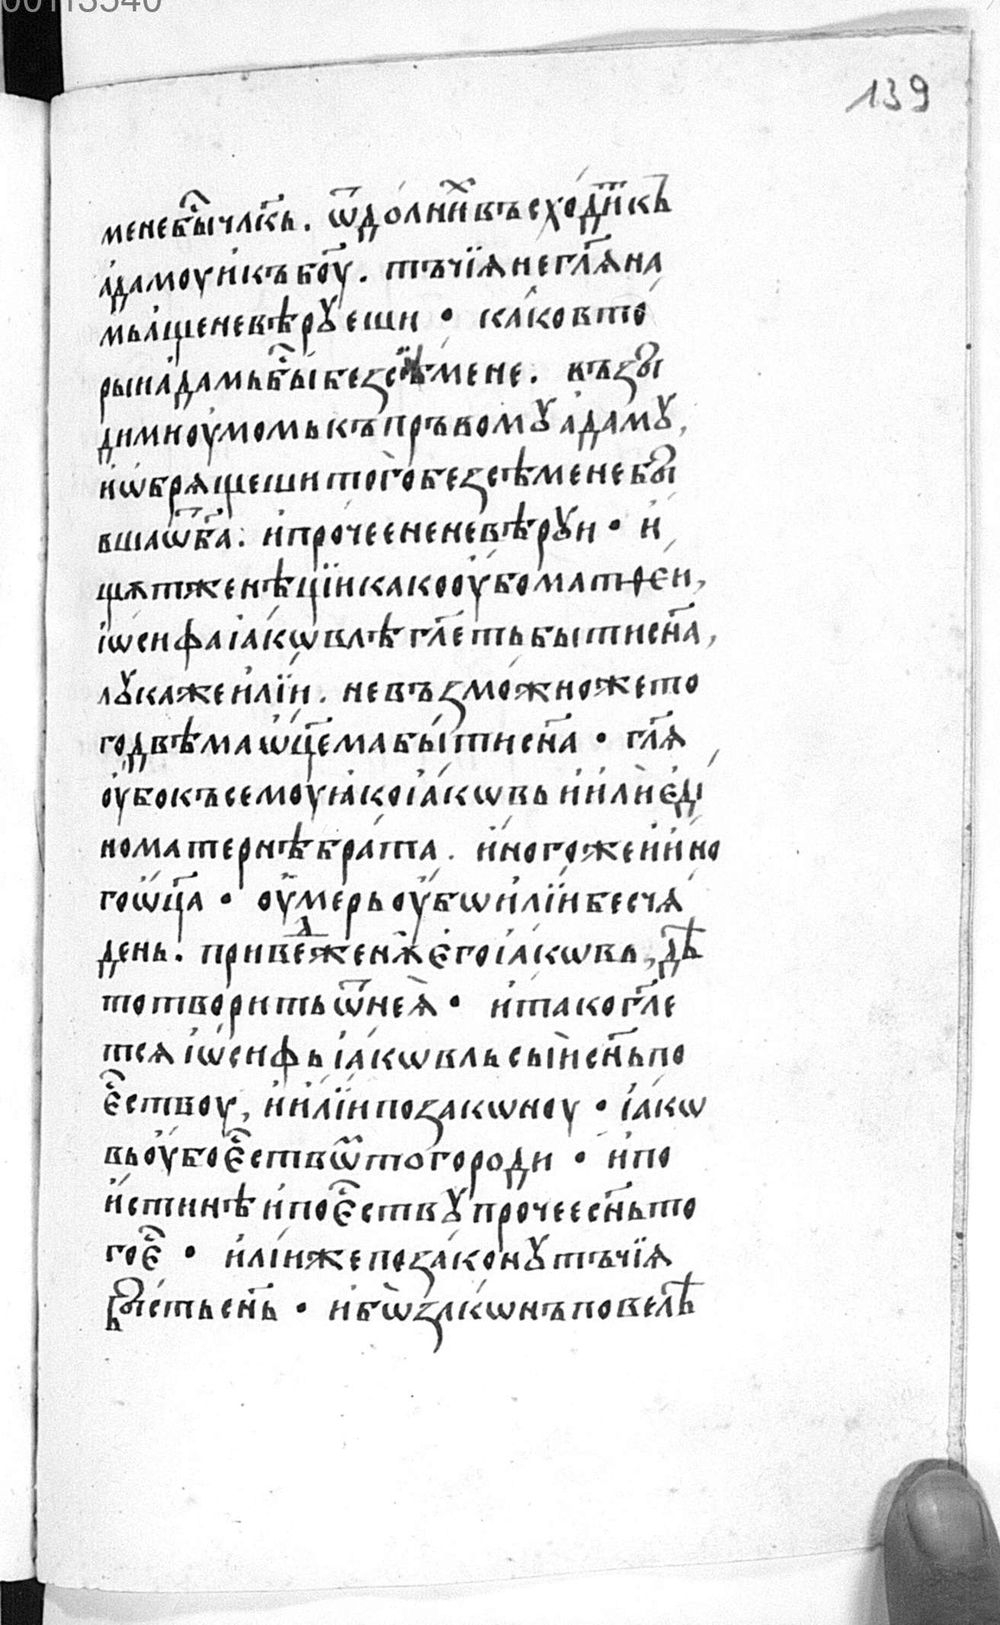 00113540
139
менебы҃члкь҃. ѿдо́лнⷯи́въсхо́дитⷮькъ
а́дамоуи́къбо҃у. тъчїѧнегл҃ѧна
мьа́щеневѣрꙋеши • ка́ковто́
рыиа́дамьбы҃безсѣ́мене. възы
димиоу́момькъпръвомꙋа́дамꙋ,
и́ѡбрѧщешитого̀безсѣменебы
вшаѿба҃. и́про́чеененевѣрꙋи • и́
щѧтженѣцїикакооу҆боматѳеи,
іѡ҆сифаіа́кѡвлѣгл҃етьбытисн҃а,
лꙋкажеи́лїи. невъзмо́жножето
годвѣмаѡ҆ц҃емабы́тисн҃а • гл҃ѧ
оу҆бокъсемоуꙗ҆́коіа́кѡвьи́и́лѝе҆ди
номатернѣбра́та. и́ногожеи́и́но
гоѡ҆ц҃а • оу҆́мерьоу҆́бѡи́лїибесчѧ́
день. приведⷧ҇женѫ̀е҆гоіа́кѡвь, дѣ
тотворитьѿнеѧ̀ • и́такогл҃е
тсѧіѡ҆́сифьіа́кѡвльсы́исн҃ьпо
є҆с҃твоу, и́и́лїипозакѡноу • іа́кѡ
вьоу҆боє҆с҃твѿтогороди • и́по
и́стиннѣи́поє҆с҃твꙋпрочеесн҃ьто
гоє҆҃ • и́лі́ижепоза́конꙋтъчїѧ
бы҃є́стьсн҃ь • и́бѡ̀зако́нъповелѣ